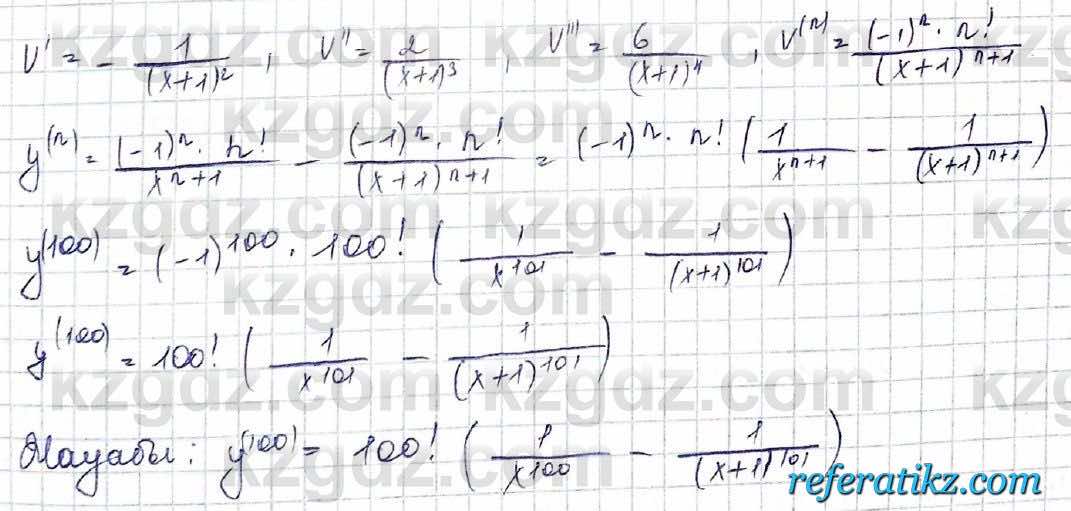 V' = - 1/(x+1)², V'' = 2/(x+1)³, V''' = 6/(x+1)⁴, V⁽ⁿ⁾ = (-1)ⁿ · n!/(x+1)ⁿ⁺¹
y⁽ⁿ⁾ = (-1)ⁿ · n!/xⁿ⁺¹ - (-1)ⁿ · n!/(x+1)ⁿ⁺¹ = (-1)ⁿ · n! (1/xⁿ⁺¹ - 1/(x+1)ⁿ⁺¹)
y⁽¹⁰⁰⁾ = (-1)¹⁰⁰ · 100! (1/x¹⁰¹ - 1/(x+1)¹⁰¹)
y⁽¹⁰⁰⁾ = 100! (1/x¹⁰¹ - 1/(x+1)¹⁰¹)
Жауабы: y⁽¹⁰⁰⁾ = 100! (1/x¹⁰⁰ - 1/(x+1)¹⁰¹)
kzgdz.com
referatikz.com